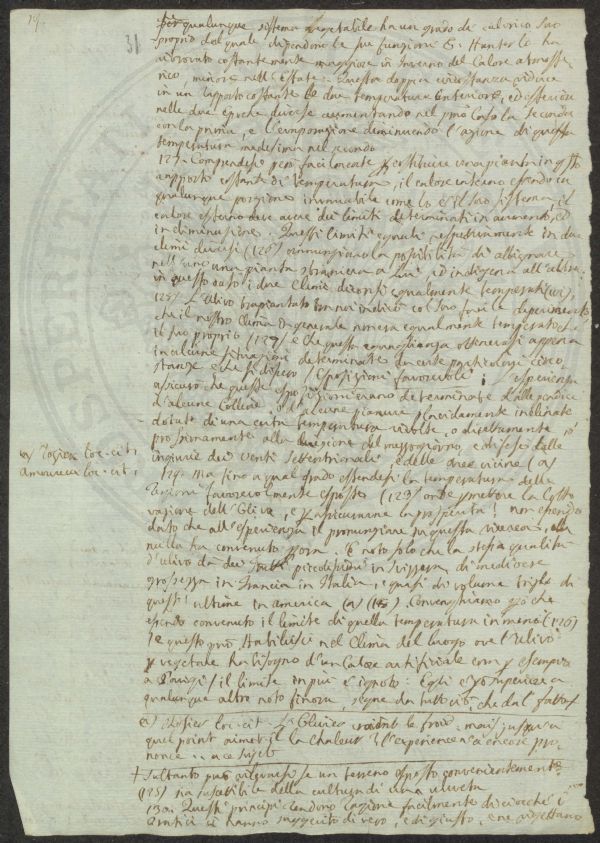 19.
31
qualunque sistema vegetabile ha un grado di calorico suo
proprio dal quale dipendono le sue funzioni. Hunter lo ha
ritrovato costantemente maggiore in Inverno del Calore atmosfe-
rico, minore nell'Estate: Questa doppia circostanza riduce
in un rapporto costante le due temperature interiore, ed esteriore
nelle due epoche diverse aumentando nel primo caso la seconda
con la prima, e l'evaporazione diminuendo l'azione di questa
temperatura medesima nel secondo
127. Comprendesi però facilmente per costituire una pianta in questo
rapporto costante di temperatura, il calore interno essendo in
qualunque porzione invariabile come lo è il suo sistema, il
calore esterno deve avere dei limiti determinati in aumento, ed
in diminuzione. Questi limiti eguali rispettivamente in due
climi diversi (126) annunziano la possibilità di allignare
nell'uno una pianta straniera a lui ed indigena all'altro.
in questo caso i due Climi diconsi egualmente temperati (ivi).
128. L'Ulivo trapiantato tra noi indicò col suo facile deperimento
che il nostro Clima in generale non era egualmente temperato che
il suo proprio (127) e che questa eguaglianza ottenevasi appena
in alcune situazioni determinate da certe particolari circo-
stanze che si dissero Esposizioni favorevoli. L'esperienza
assicurò che queste esposizioni erano determinate dalle pendici
d'alcune Colline, o d'alcune pianure placidamente inclinate
dotate di una certa temperatura rivolte, o direttamente, o
prossimamente alla direzione del mezzogiorno, e difese dalle
ingiurie dei venti Settentrionali, e delle aree vicine (a)
(a) Rozier loc. cit.
Amoureux loc. cit.
129. Ma fino a qual grado estendesi la temperatura delle
azioni favorevolmente esposte (128) onde permettere la Colti-
vazione dell'Ulivo, e per assicurarne la prosperità! non essendo
dato che all'esperienza il pronunziare in questa ricerca, ella
nulla ha convenuto finora. È noto solo che la stessa qualità
d'ulivo dà dei frutti piccolissimi in Svizzera, di mediocre
grossezza in Francia in Italia, e quasi di volume triplo di
questi ultimi in america (a) Convenghiamo però che
essendo convenuto il limite di quella temperatura in meno (126)
e questo può stabilirsi nel Clima del luogo ove l'Ulivo
per vegetare ha bisogno d'un Calore artifiziale come per esempio
a Parigi, il limite in più è ignoto: Egli è superiore a
qualunque altro noto finora, segue da tutto ciò, che dal fatto
(a) Rosier loc. cit. L'Olivier craint le froid, mais jusqu'à
quel point aime-t-il la chaleur? l'experience n'a encore pro-
noncé a ce sujet
+ Soltanto può rilevarsi se un terreno esposto convenientemente
(128) sia suscettibile della cultura di una uliveta
130. Questi principj rendono ragione facilmente di ciocchè i
pratici ci hanno suggerito di vero, e di giusto, e ne rigettano